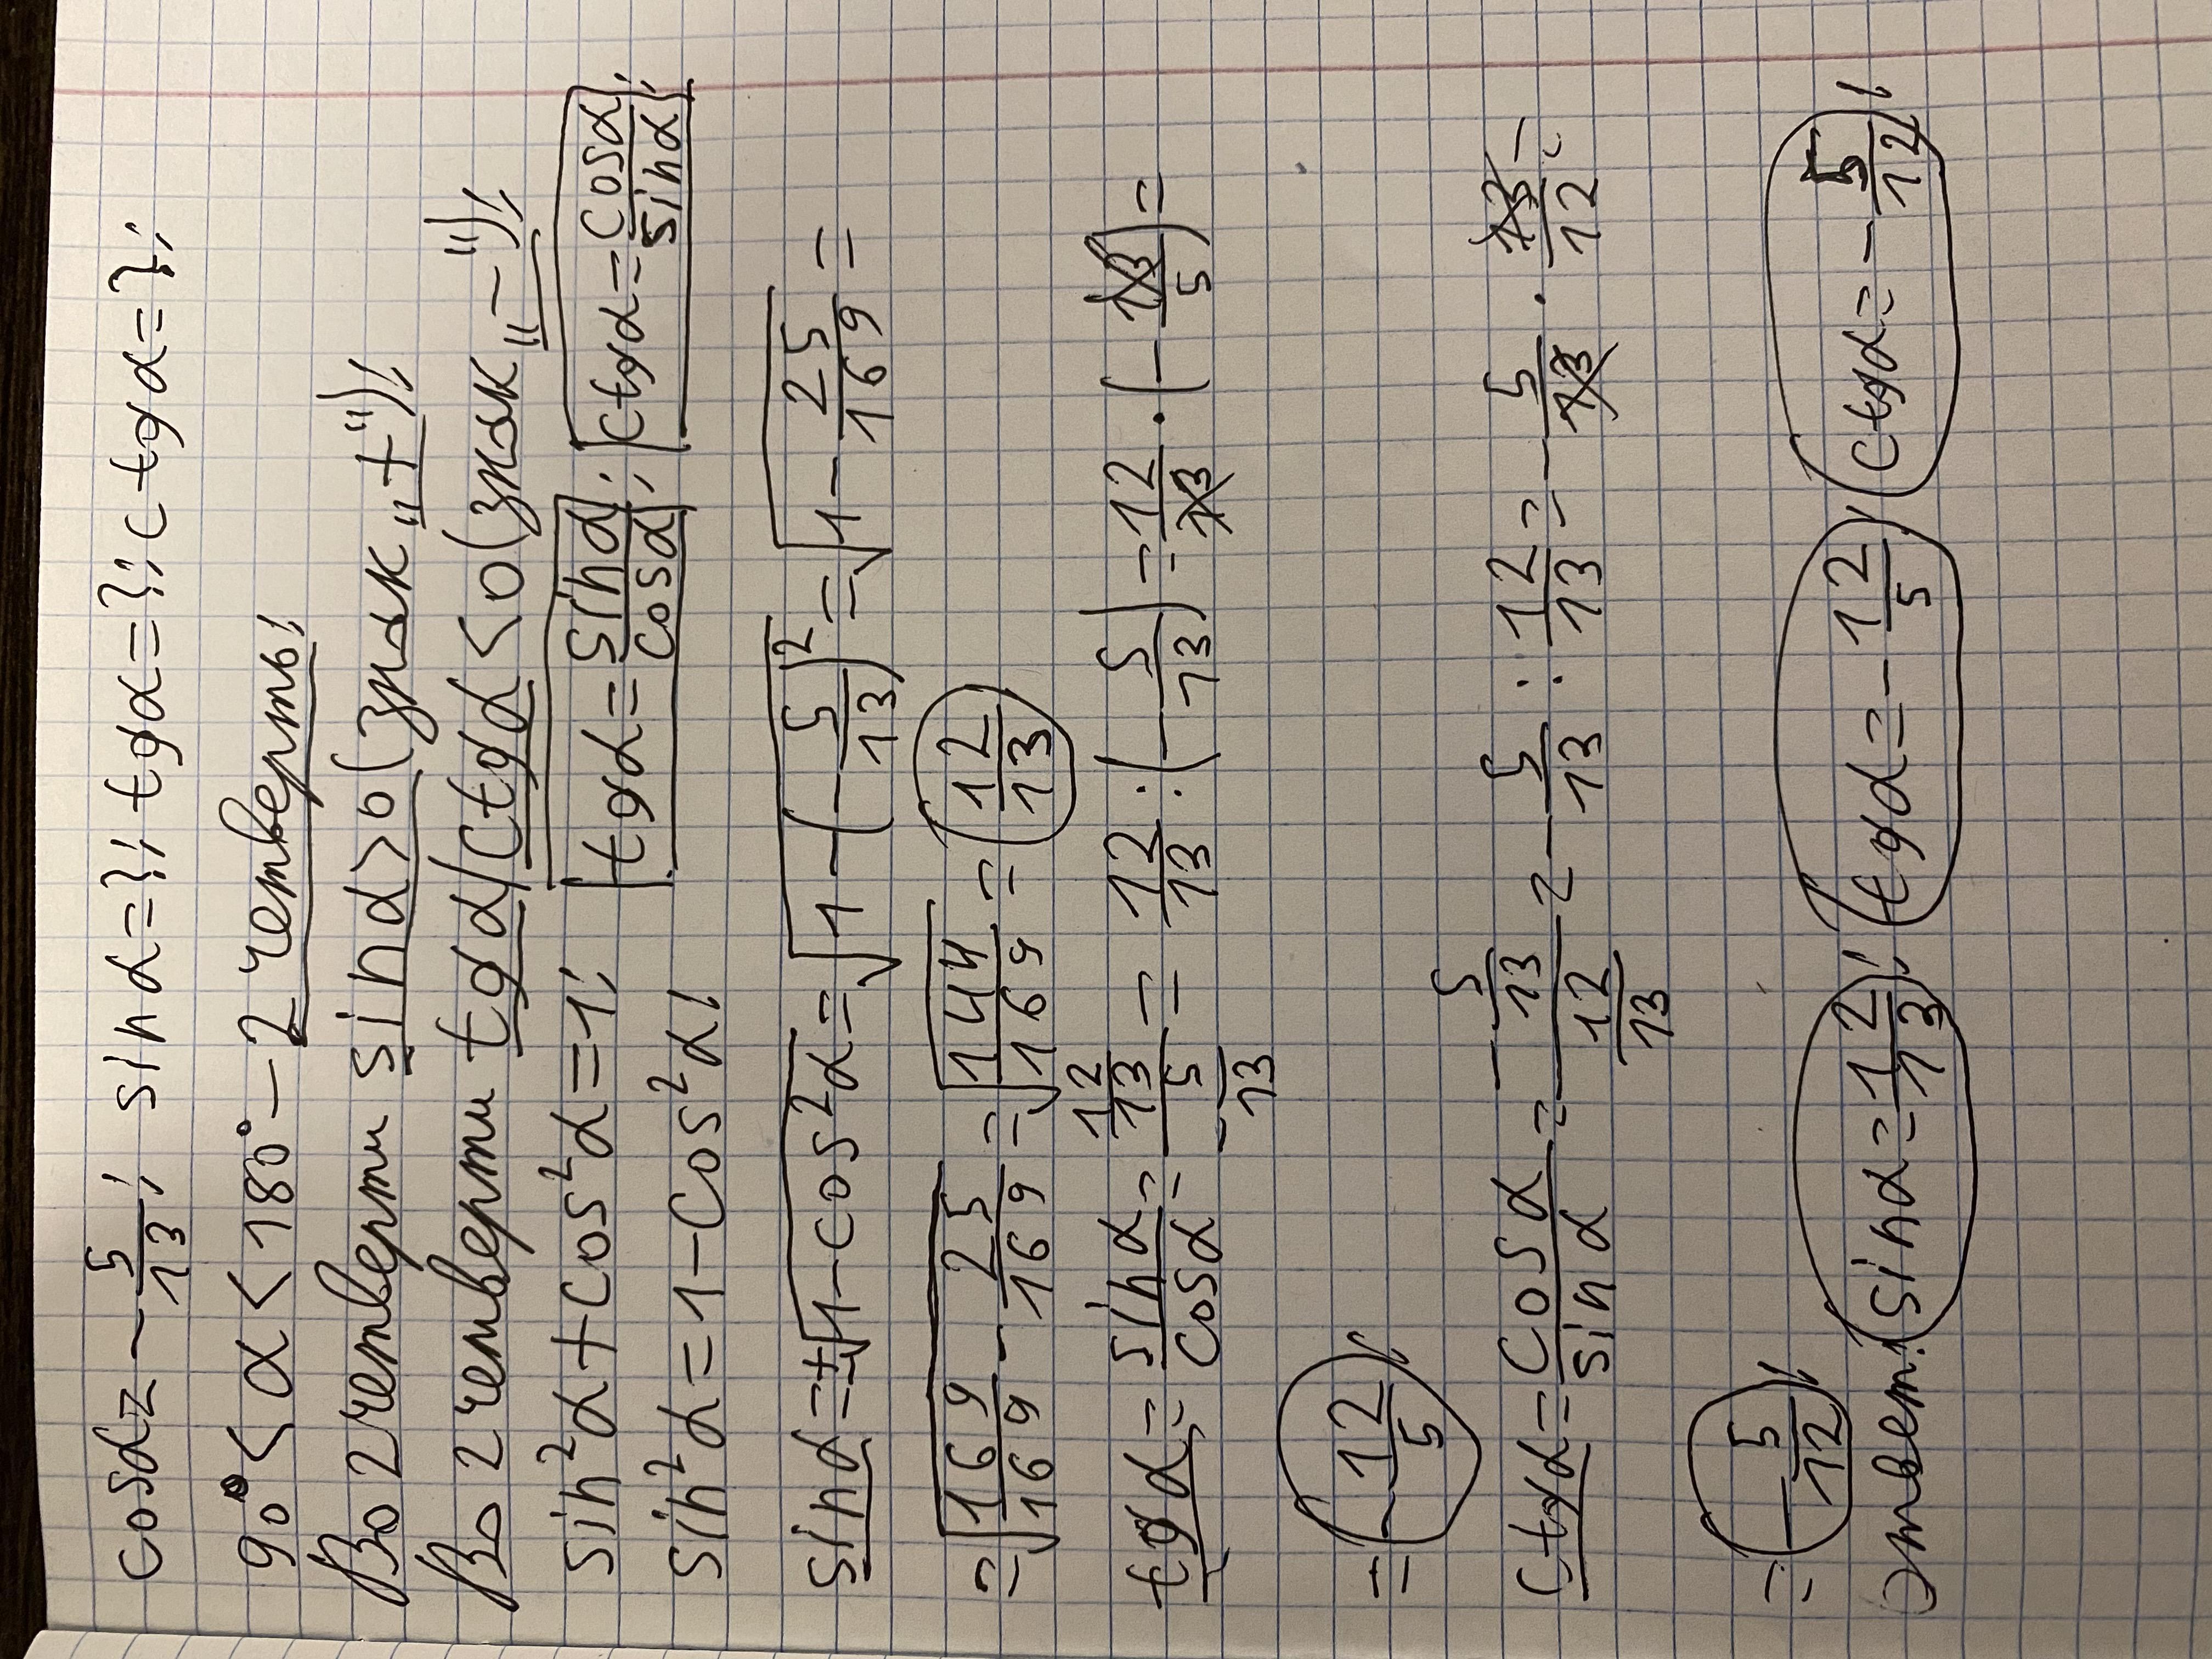 cosα = -5/13; sinα=?; tgα=?; ctgα=?;
90°<α<180° - 2 четверть;
Во 2 четверти sinα>0 (знак "+");
Во 2 четверти tgα/ctgα<0 (знак "-");
sin²α+cos²α=1; tgα=sinα/cosα; ctgα=cosα/sinα;
sin²α=1-cos²α;
sinα=+√(1-cos²α)=√(1-(-5/13)²)=√(1-25/169)=
=√(169/169-25/169)=√(144/169)=12/13
tgα=sinα/cosα=(12/13)/(-5/13)=12/13:(-5/13)=12/13·(-13/5)=
=-12/5;
ctgα=cosα/sinα=(-5/13)/(12/13)=-5/13:12/13=-5/13·13/12=
=-5/12;
Ответ: sinα=12/13; tgα=-12/5; ctgα=-5/12;